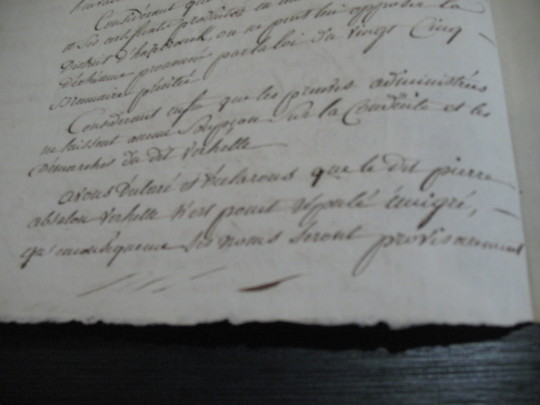 Considérant que
a ses certificats produits en
District d'hazebrouck, on ne peut lui opposer la
déchéance prononcée par la loi du vingt Cinq -
brumaire précité
Considerant enfin que les preuves administrées
ne laissent aucun Soupçon Sur la Conduite et les
demarches du dit Verhette
avons déclaré et declarons que le dit pierre
absalon Verhette n'est point réputé émigré, -
qu'en conséquence Ses noms Seront provisoirement